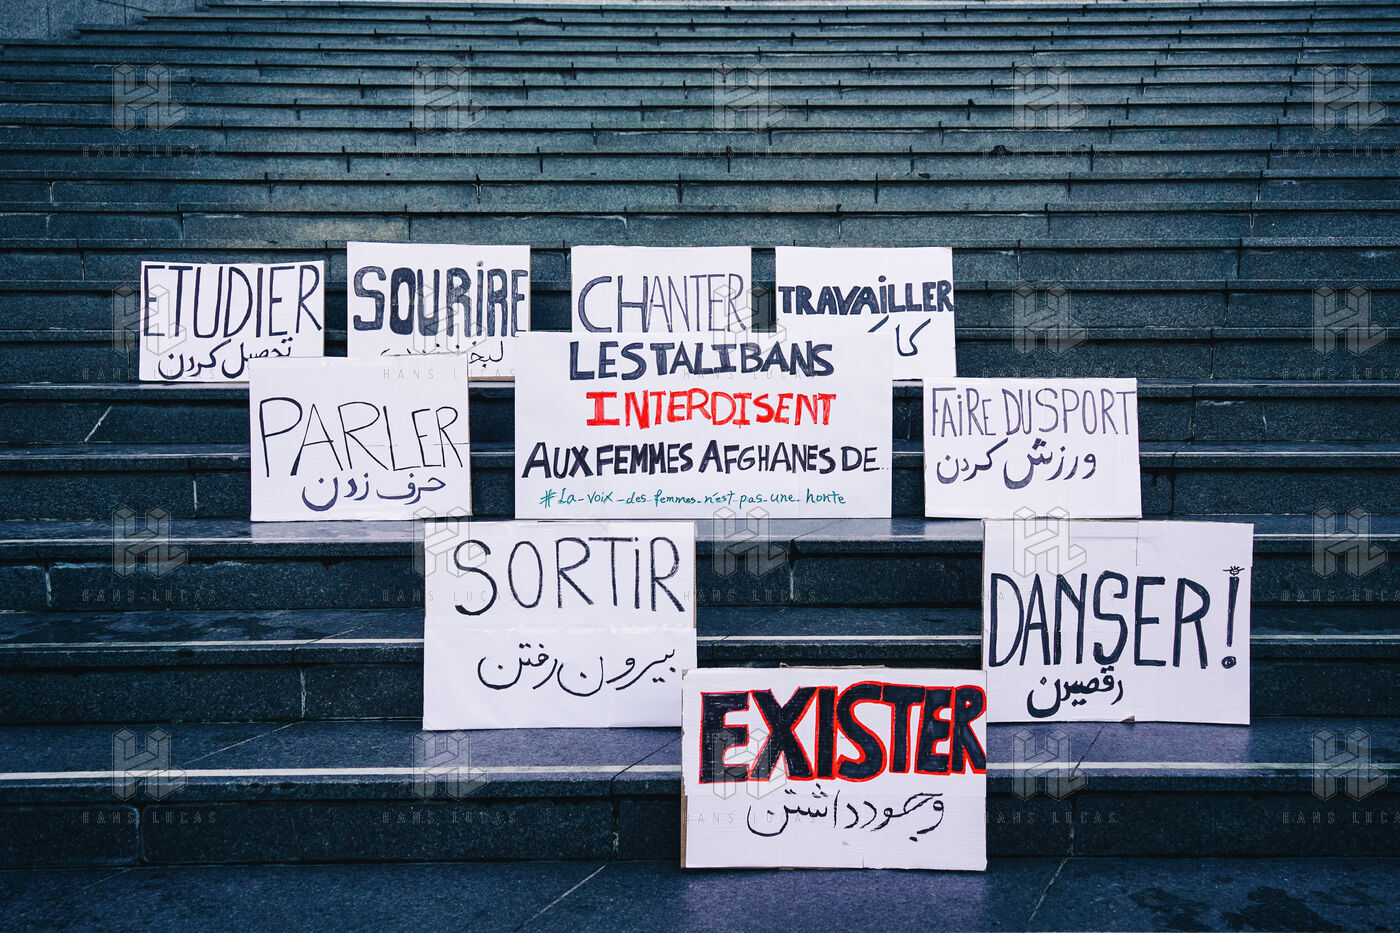 ETUDIER
تحصیل کردن
SOURIRE
CHANTER
TRAVAILLER
PARLER
حرف زدن
LES TALIBANS
INTERDISENT
AUX FEMMES AFGHANES DE...
#La_voix_des_femmes_n'est_pas_une_honte
FAIRE DU SPORT
ورزش کردن
SORTIR
بیرون رفتن
DANSER!
رقصیدن
EXISTER
وجود داشتن
HANS LUCAS